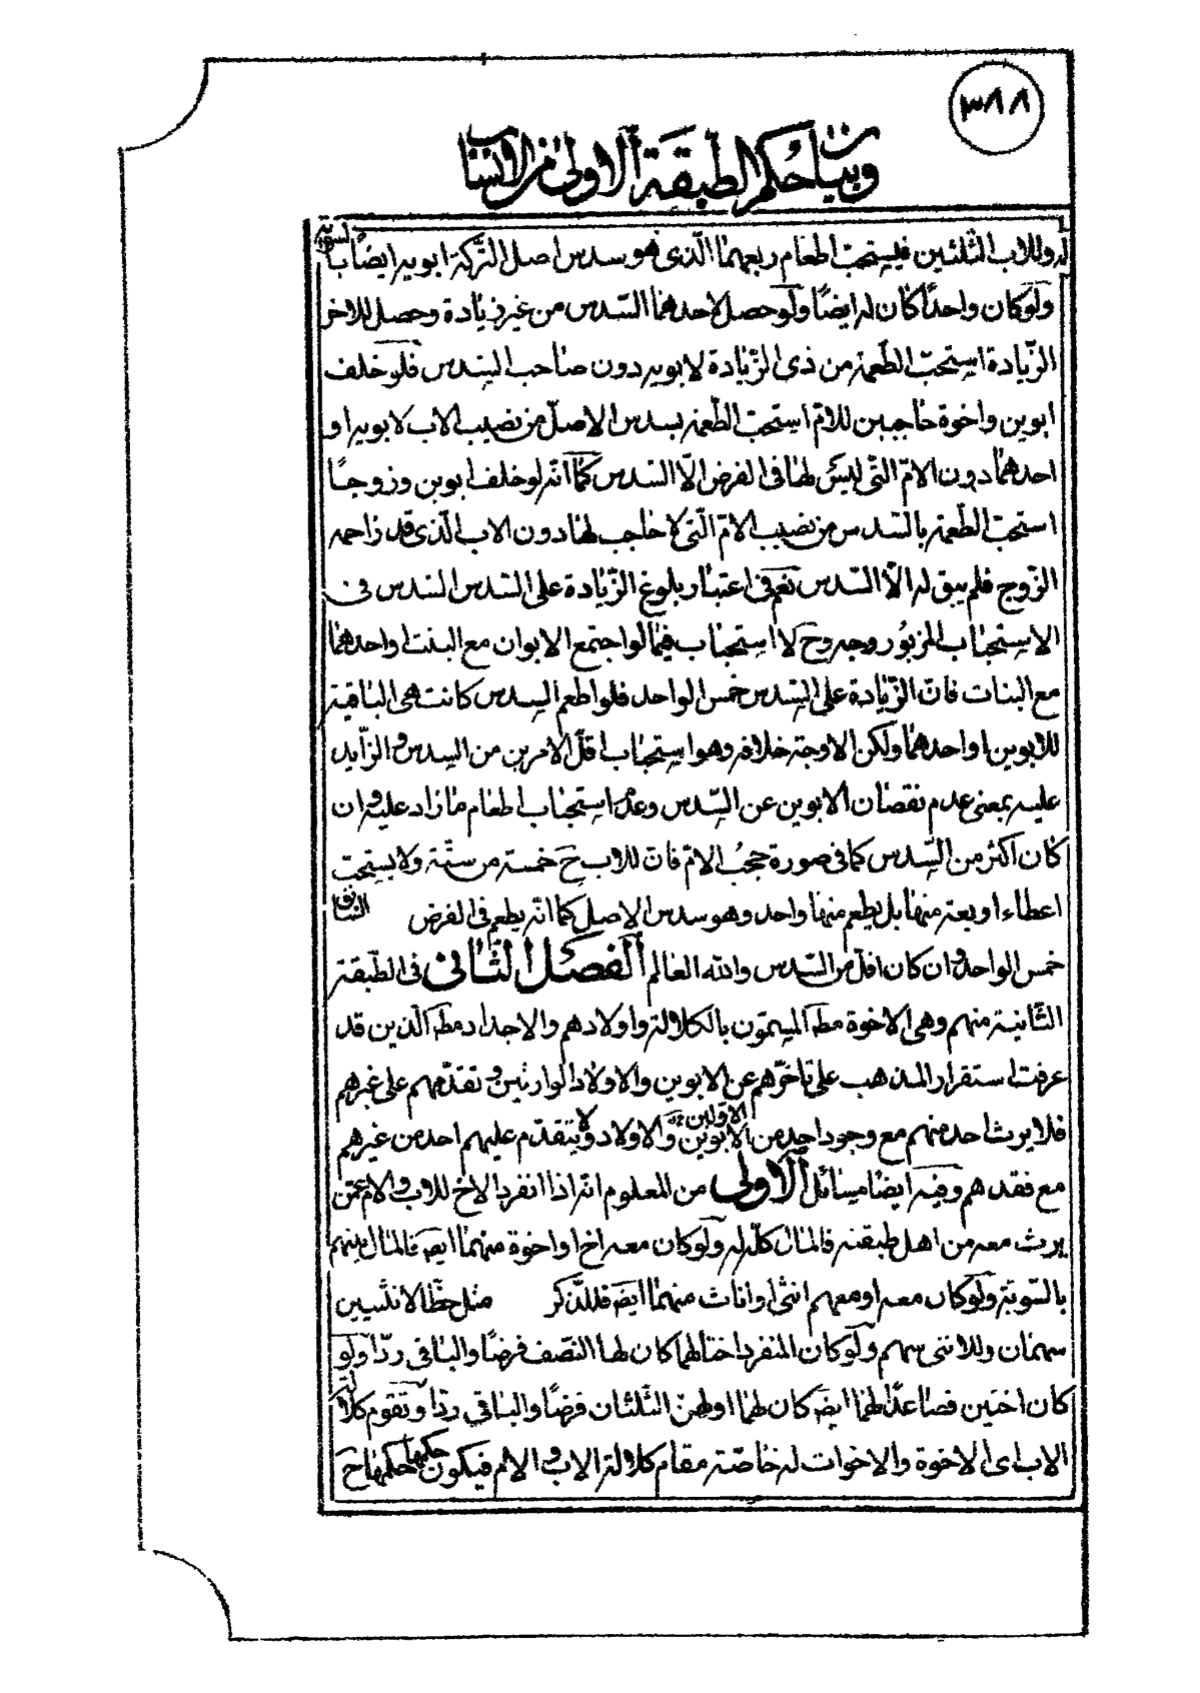 ٣٨٨
وبيان حكم الطبقة الاولى من الانساب
له وللاب الثلثين فيستحب اطعام ربعهما الّذى هو سدس اصل التّركة ابويه ايضًا بالسوية
ولو كان واحدًا كان له ايضًا ولو حصل لاحدهما السّدس من غير زيادة وحصل للاخر
الزّيادة استحبّ الطّعمة من ذى الزّيادة لابويه دون صاحب السّدس فلو خلف
ابوين واخوة حاجبين للامّ استحبّ الطّعمة بسدس الاصل من نصيب الاب لابويه او
احدهما دون الامّ الّتى ليس لها فى الفرض الّا السّدس كما انّه لو خلف ابوين وزوجًا
استحبّ الطّعمة بالسّدس من نصيب الامّ الّتى لا حاجب لها دون الاب الّذى قد زاحمه
الزّوج فلم يبق له الّا السّدس نعم فى اعتبار بلوغ الزّيادة على السّدس السّدس فى
الاستحباب المزبور وجه وح لا استحباب فيما لو اجتمع الابوان مع البنت او احدهما
مع البنات فانّ الزّيادة على السّدس خمس الواحد فلو اطعم السّدس كانت هى الباقية
للابوين او احدهما ولكن الاوجه خلافه وهو استحباب اقلّ الامرين من السّدس والزّايد
عليه بمعنى عدم نقصان الابوين عن السّدس وعدم استحباب اطعام ما زاد عليه وان
كان اكثر من السّدس كما فى صورة حجب الامّ فانّ للاب ح خمسة من ستّة ولا يستحبّ
اعطاء اربعة منها بل يطعم منها واحد وهو سدس الاصل كما انّه يطعم فى الفرض السّابق
خمس الواحد وان كان اقلّ من السّدس والله العالم الفصل الثّانى فى الطّبقة
الثّانية منهم وهى الاخوة مطه المسمّون بالكلالة واولادهم والاجداد مطه الّذين قد
عرفت استقرار المذهب على تاخّرهم عن الابوين والاولاد الوارثين وتقدّمهم على غيرهم
فلا يرث احد منهم مع وجود احد من الابوين الاوّلين والاولاد ولا يتقدّم عليهم احد من غيرهم
مع فقدهم وفيه ايضًا مسائل الاولى من المعلوم انّه اذا انفرد الاخ للاب والامّ عمّن
يرث معه من اهل طبقته فالمال كلّه له ولو كان معه اخ او اخوة منهما ايضه فالمال بينهم
بالسّويّة ولو كان معه او معهم انثى او اناث منهما ايضه فللذّكر مثل حظّ الانثيين
سهمان وللانثى سهم ولو كان المنفرد اختا لهما كان لها النّصف فرضًا والباقى ردّا ولو
كان اختين فصاعدًا لهما ايضه كان لهما او لهنّ الثّلثان فرضًا والباقى ردّا وتقوم كلالة
الاب اى الاخوة والاخوات له خاصّة مقام كلالة الاب والامّ فيكون حكمها حكمها ح